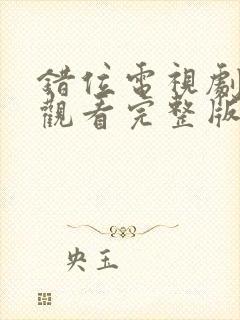 錯位電視劇
觀看完整版
央玉